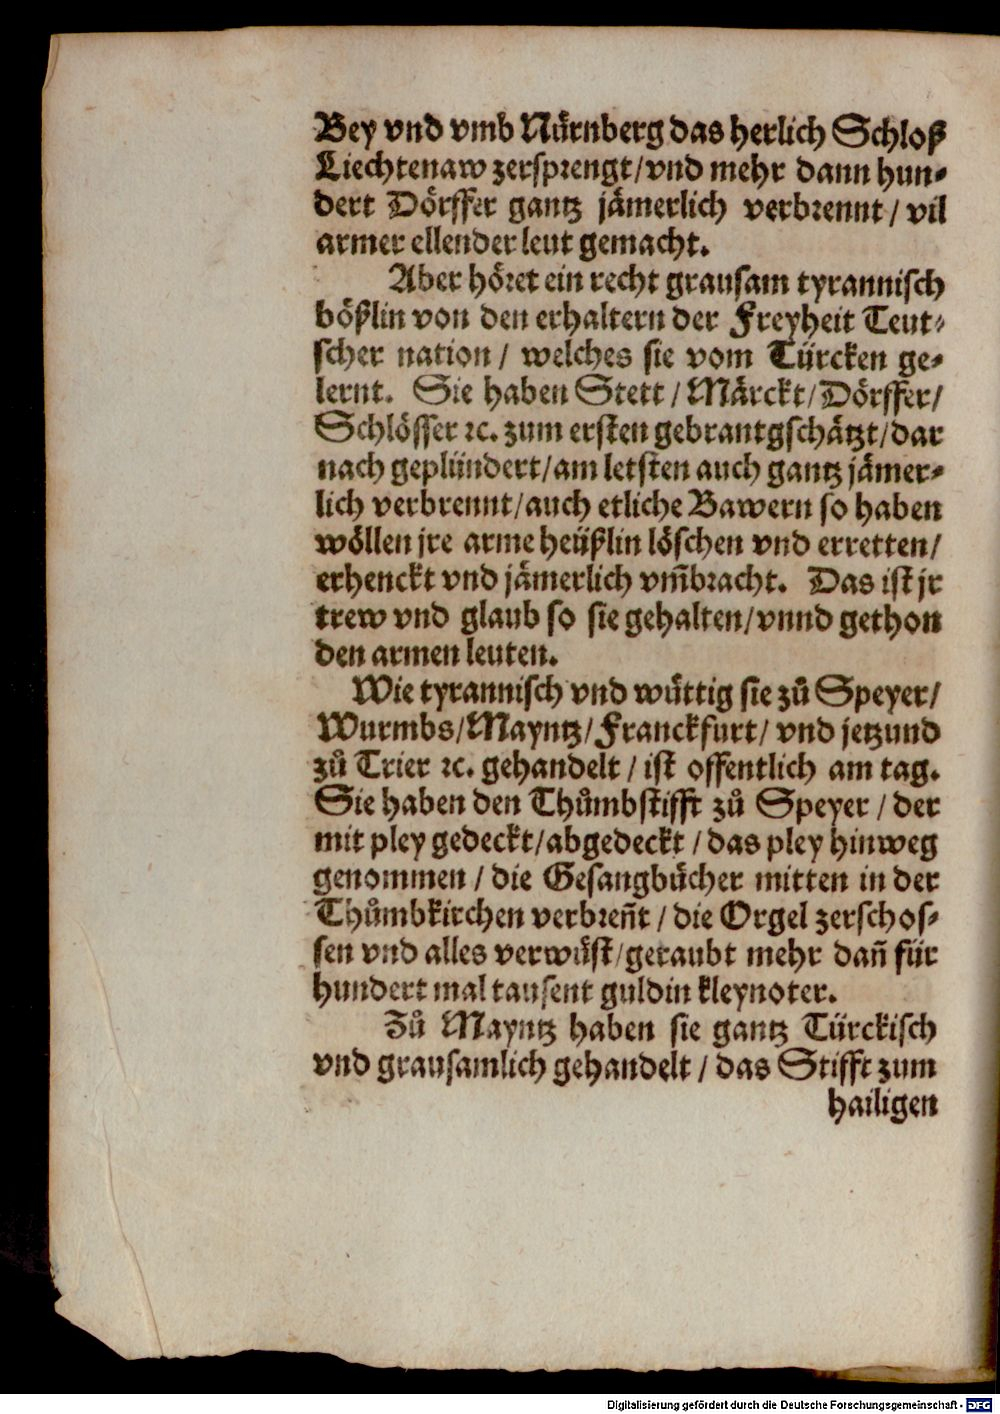 Bey vnd vmb Nürnberg das herlich Schloß
Liechtenaw zersprengt/vnd mehr dann hun-
dert Dörffer gantz jämerlich verbrennt/ vil
armer ellender leut gemacht.
Aber höret ein recht grausam tyrannisch
bößlin von den erhaltern der Freyheit Teut-
scher nation/ welches sie vom Türcken ge-
lernt. Sie haben Stett/Märckt/Dörffer/
Schlösser ꝛc. zum ersten gebrantgschätzt/dar
nach geplündert/am letsten auch gantz jämer-
lich verbrennt/auch etliche Bawern so haben
wöllen jre arme heüßlin löschen vnd erretten/
erhenckt vnd jämerlich vm̃bracht. Das ist jr
trew vnd glaub so sie gehalten/vnnd gethon
den armen leuten.
Wie tyrannisch vnd wüttig sie zů Speyer/
Wurmbs/Mayntz/Franckfurt/ vnd jetzund
zů Trier ꝛc. gehandelt/ ist offentlich am tag.
Sie haben den Thůmbstifft zů Speyer/ der
mit pley gedeckt/abgedeckt/das pley hinweg
genommen/ die Gesangbücher mitten in der
Thůmbkirchen verbreñt/ die Orgel zerschos-
sen vnd alles verwüst/geraubt mehr dañ für
hundert mal tausent guldin kleynoter.
Zů Mayntz haben sie gantz Türckisch
vnd grausamlich gehandelt/ das Stifft zum
hailigen
Digitalisierung gefördert durch die Deutsche Forschungsgemeinschaft - DFG